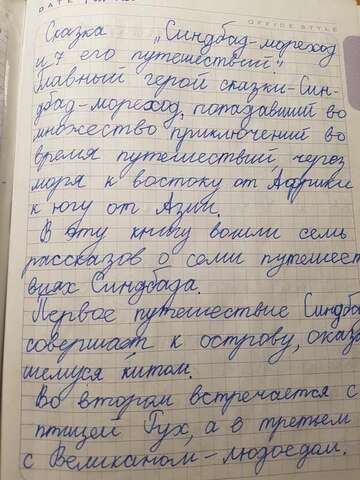 DATE
OFFICE STYLE
Сказка „Синдбад-мореход
и 7 его путешествий."
Главный герой сказки-Син-
дбад-мореход, попадавший во
множество приключений во
время путешествий через
моря к востоку от Африки
к югу от Азии.
В эту книгу вошли семь
рассказов о семи путешест
виях Синдбада.
Первое путешествие Синдба
совершает к острову, оказа
шемуся китом.
Во втором встречается с
птицей Рух, а в третьем
с Великаном-людоедом.